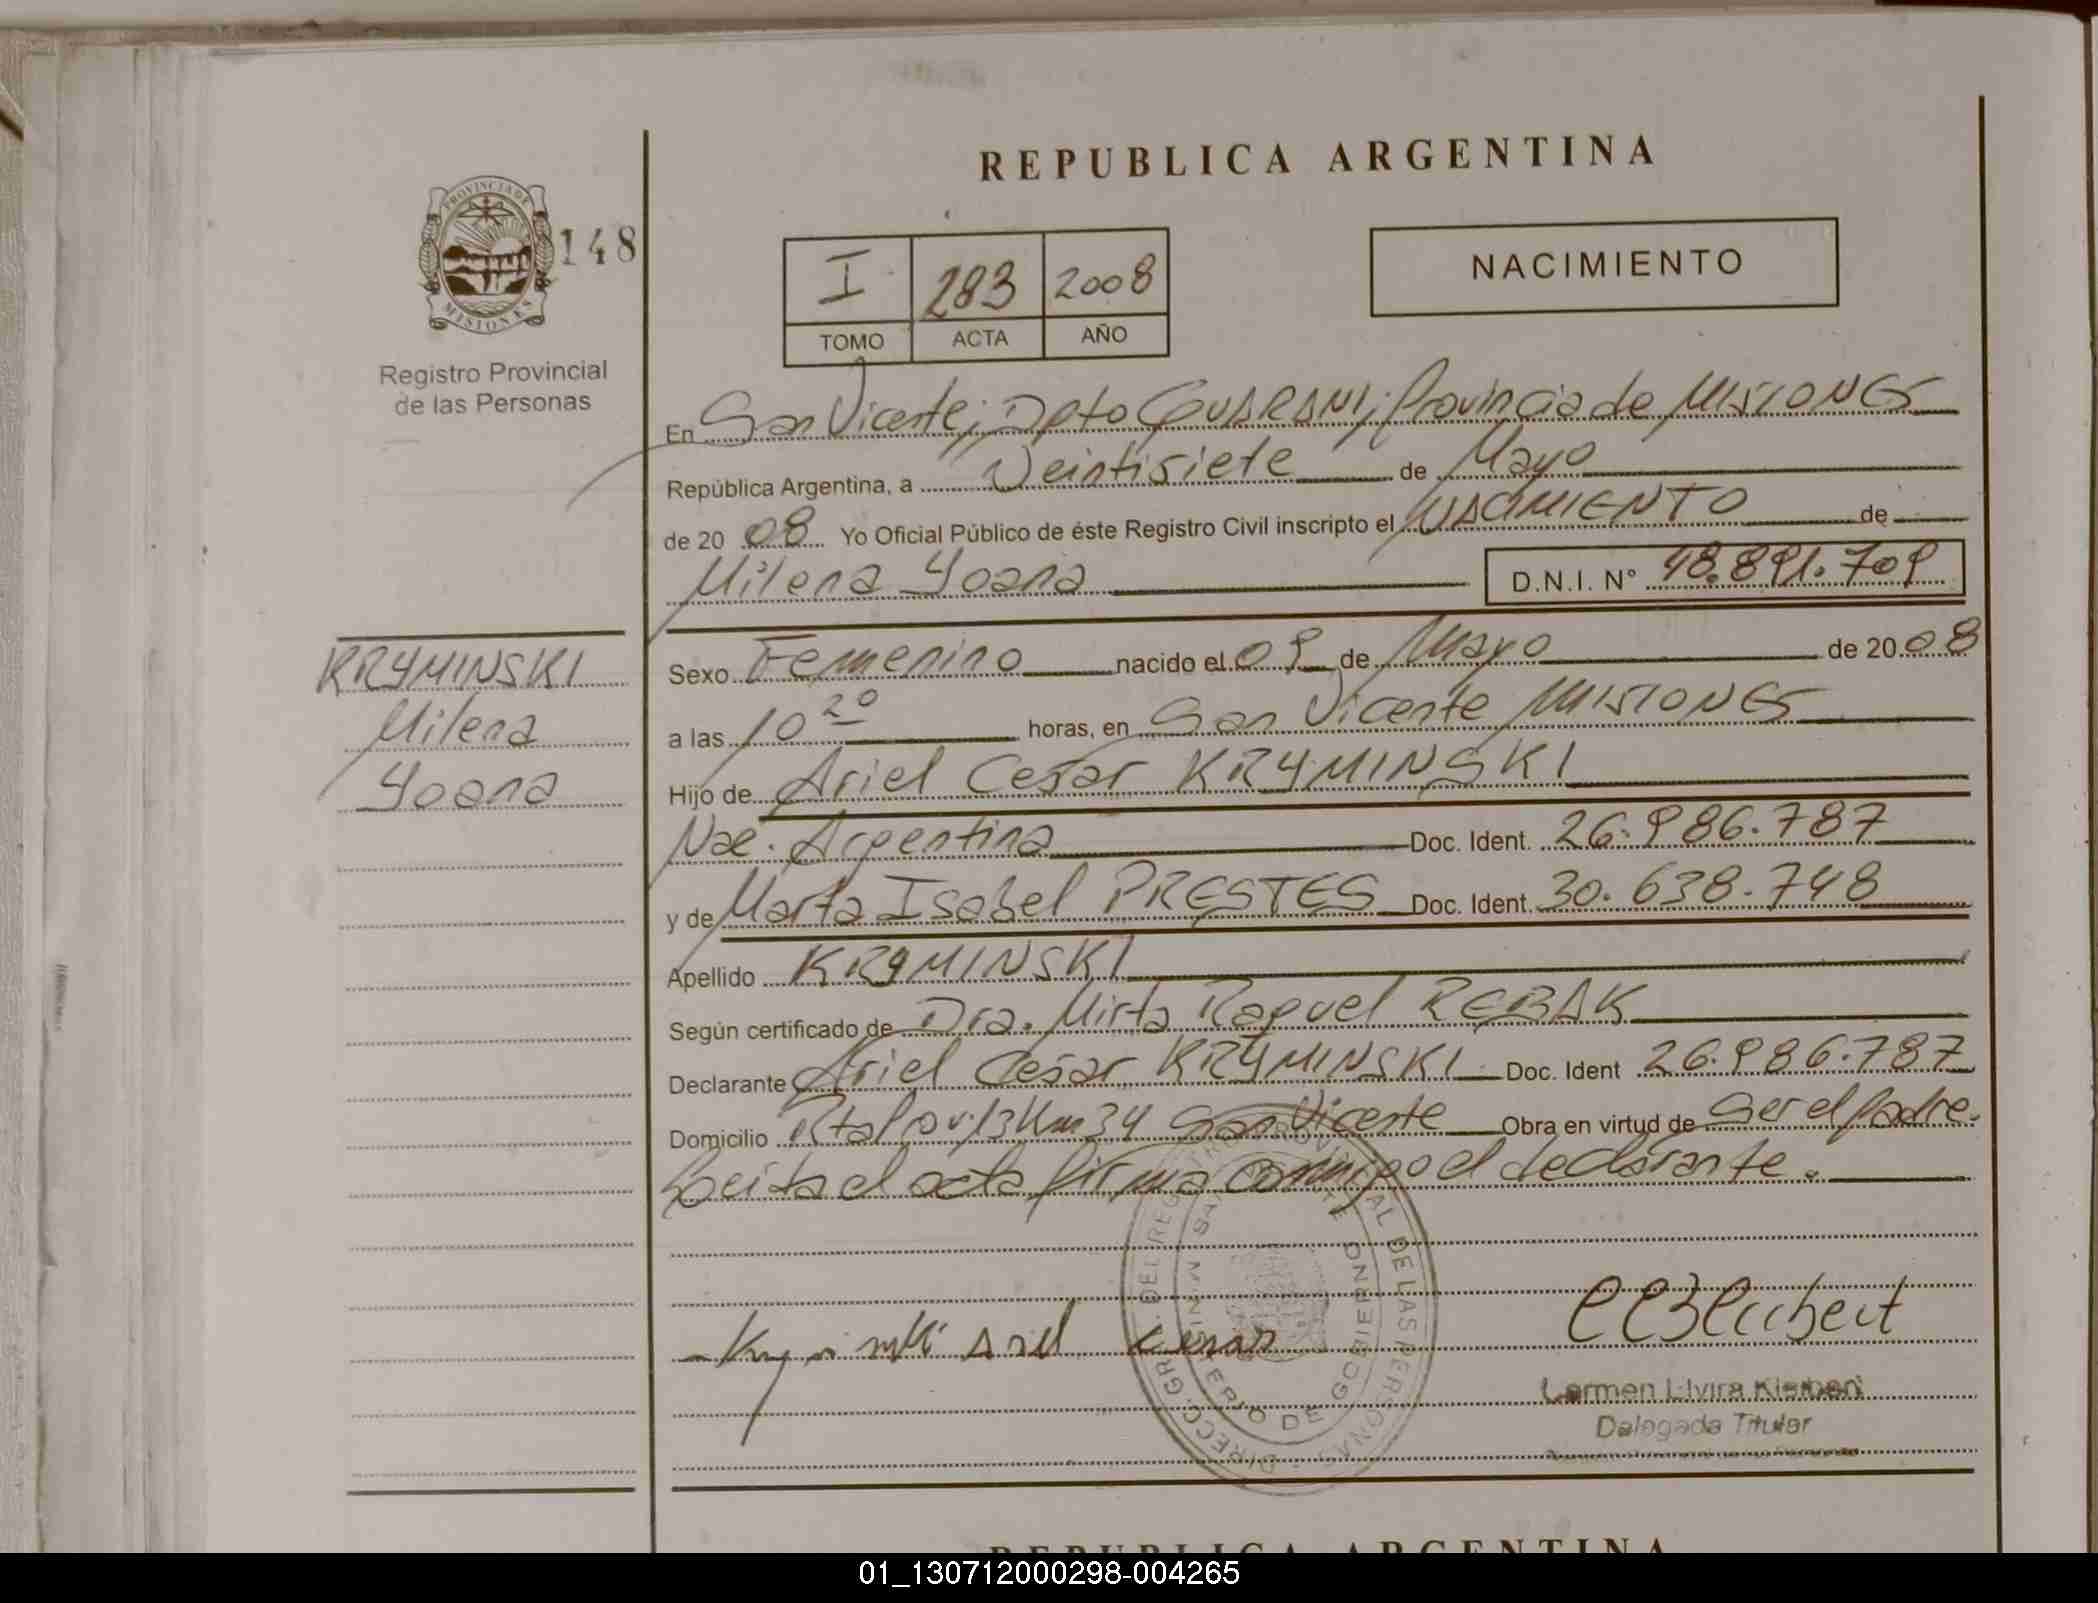 REPUBLICA ARGENTINA
PROVINCIA DE
MISIONES
148
Registro Provincial
de las Personas
I 283 2008
TOMO ACTA AÑO
NACIMIENTO
En San Vicente; Dpto GUARANI; Provincia de MISIONES
República Argentina, a Veintisiete de Mayo
de 2008 Yo Oficial Público de éste Registro Civil inscripto el NACIMIENTO de
Milena Yoana D.N.I. Nº 48.891.709
KRYMINSKI
Milena
Yoana
Sexo Femenino nacido el 09 de Mayo de 2008
a las 10 20 horas, en San Vicente MISIONES
Hijo de Ariel Cesar KRYMINSKI
Nac. Argentina Doc. Ident. 26.986.787
y de Marta Isabel PRESTES Doc. Ident. 30.638.748
Apellido KRYMINSKI
Según certificado de Dra. Mirta Raquel REBAK
Declarante Ariel Cesar KRYMINSKI Doc. Ident 26.986.787
Domicilio Km 34 San Vicente Obra en virtud de Ser el padre.
Leída el acta firma conmigo el declarante.
DIRECC. GR. DEL REGISTRO PROVINCIAL DE LAS PERSONAS
MINISTERIO DE GOBIERNO
Ariel Cesar
Carmen Elvira
Delegada Titular
REPUBLICA ARGENTINA
01_130712000298-004265